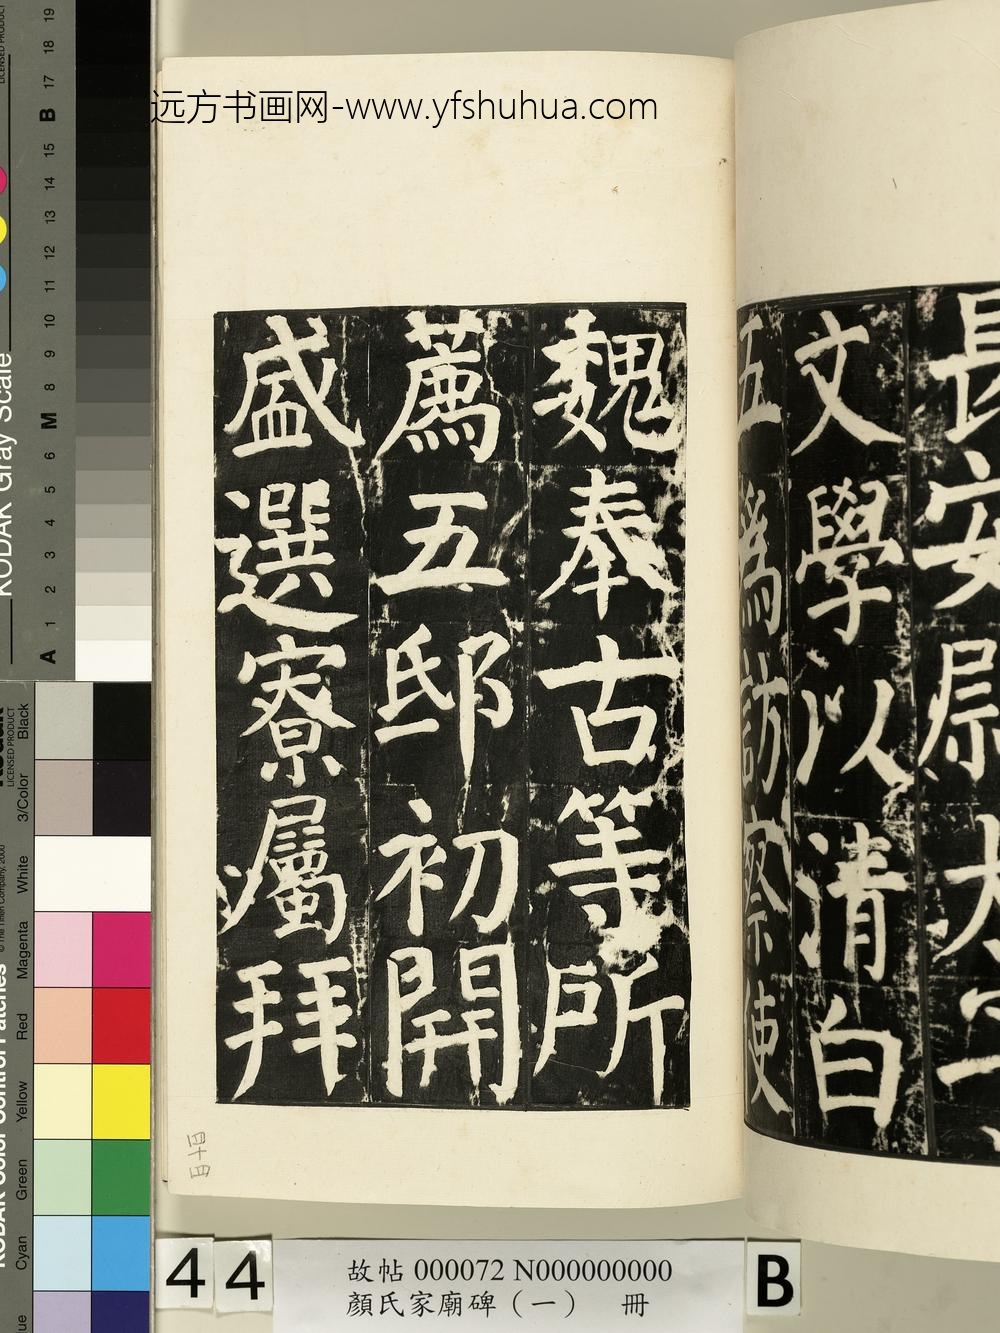 远方书画网-www.yfshuhua.com
長安尉太子
文學以清白
五爲訪察使
魏奉古等所
薦五邸初開
盛選寮屬拜
四十四
44
故帖 000072 N000000000
顏氏家廟碑（一） 冊
B
KODAK Gray Scale
LICENSED PRODUCT
A 1 2 3 4 5 6 M 8 9 10 11 12 13 14 15 B 17 18 19
KODAK Color Control Patches
© The Tiffen Company, 2000
LICENSED PRODUCT
Cyan
Green
Yellow
Red
Magenta
White
3/Color
Black